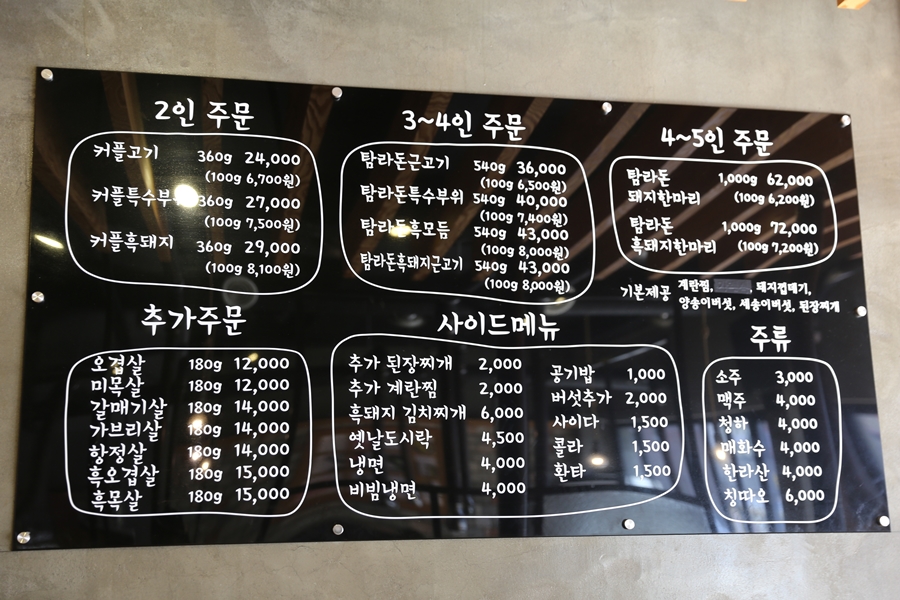 2인 주문
커플고기 360g 24,000
(100g 6,700원)
커플특수부 360g 27,000
(100g 7,500원)
커플흑돼지 360g 29,000
(100g 8,100원)
3~4인 주문
탐라돈근고기 540g 36,000
(100g 6,500원)
탐라돈특수부위 540g 40,000
(100g 7,400원)
탐라돈흑모듬 540g 43,000
(100g 8,000원)
탐라돈흑돼지근고기 540g 43,000
(100g 8,000원)
4~5인 주문
탐라돈 1,000g 62,000
돼지한마리 (100g 6,200원)
탐라돈 1,000g 72,000
흑돼지한마리 (100g 7,200원)
기본제공 계란찜, , 돼지껍데기,
양송이버섯, 새송이버섯, 된장찌개
추가주문
오겹살 180g 12,000
미목살 180g 12,000
갈매기살 180g 14,000
가브리살 180g 14,000
항정살 180g 14,000
흑오겹살 180g 15,000
흑목살 180g 15,000
사이드메뉴
추가 된장찌개 2,000
추가 계란찜 2,000
흑돼지 김치찌개 6,000
옛날도시락 4,500
냉면 4,000
비빔냉면 4,000
공기밥 1,000
버섯추가 2,000
사이다 1,500
콜라 1,500
환타 1,500
주류
소주 3,000
맥주 4,000
청하 4,000
매화수 4,000
한라산 4,000
칭따오 6,000